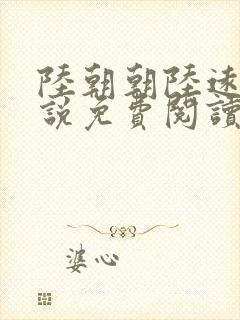 陸朝朝陸遠
說免費閱讀
婆心